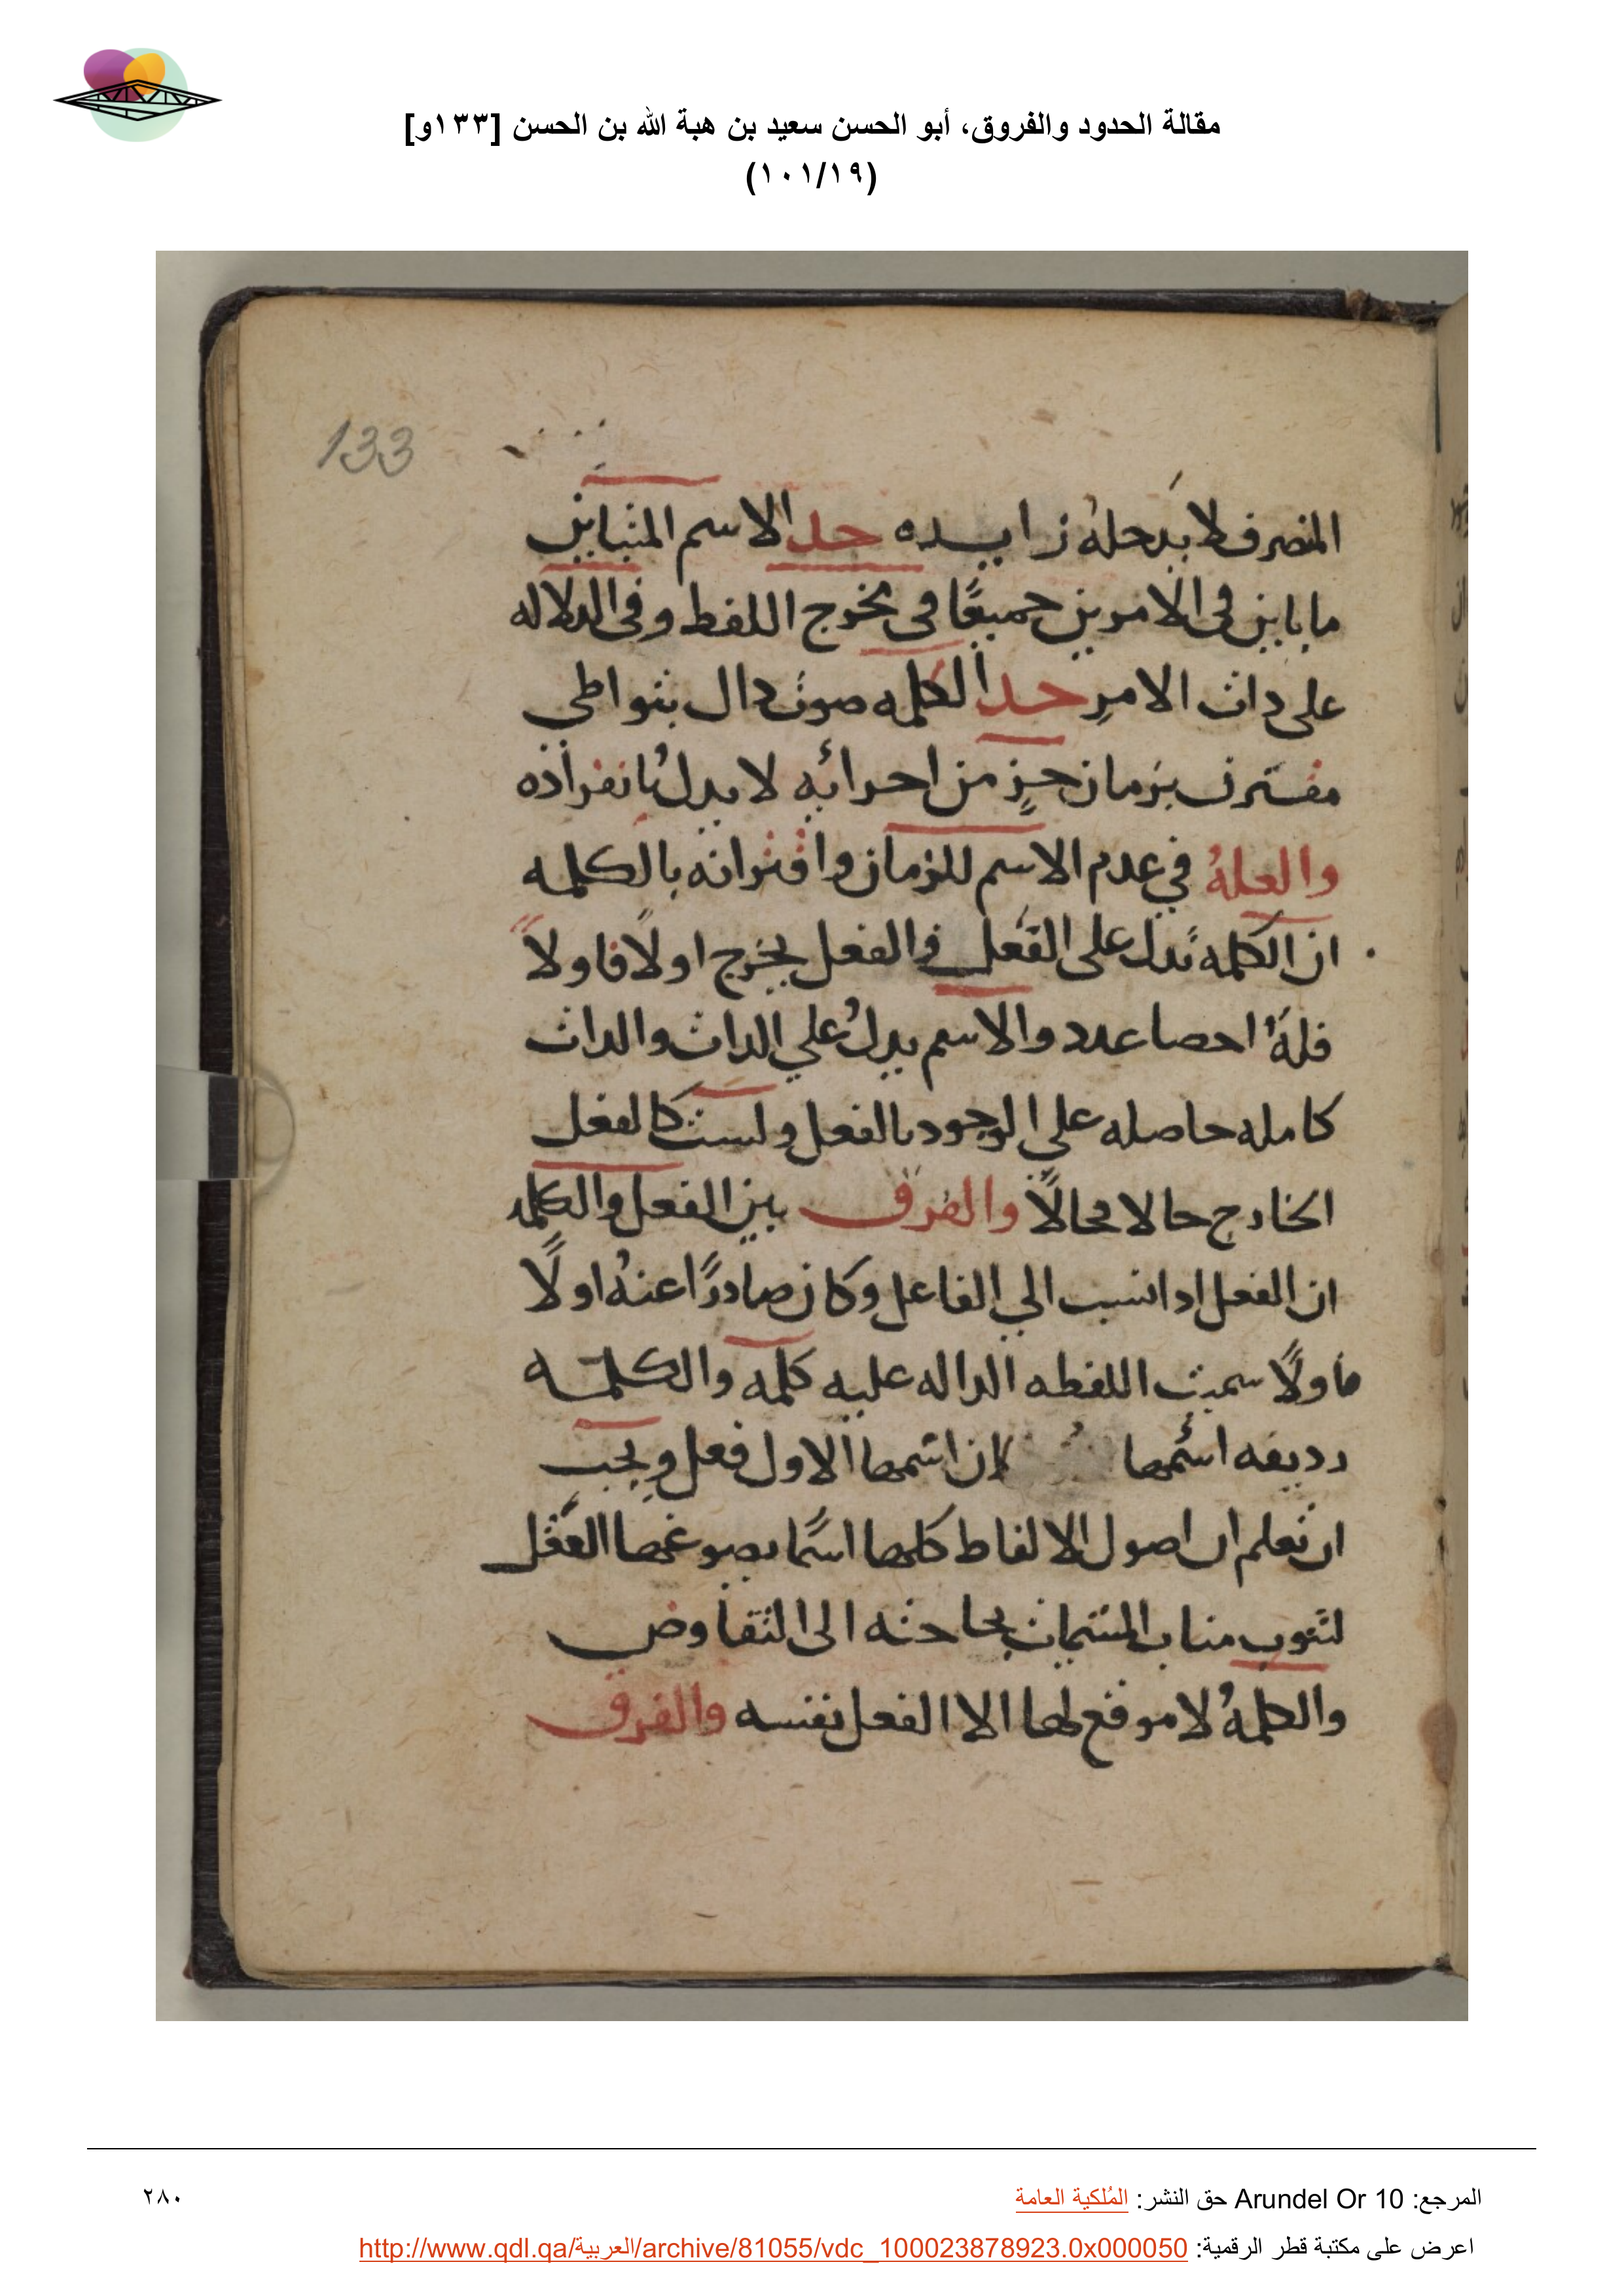 مقالة الحدود والفروق، أبو الحسن سعيد بن هبة الله بن الحسن [١٣٣و]
(١٠١/١٩)
133
المنصرف لا يدخله زايده حد الاسم المتباين
ما باين في الامرين جميعًا في مخرج اللفط وفي الدلاله
على دات الامرِ حد الكلمه صوت دال بتواطي
مقترن بزمان جزٍ من اجزائهِ لا يدلُ بانفراده
والعلهُ في عدم الاسم للزمان واقترانه بالكلمه
ان الكلمه تدل على الفعل والفعل يخرج اولًا فاولاً
فلهُ احصا عدد والاسم يدلُ علي الدات والدات
كامله حاصله علي الوجود بالفعل وليست كالفعل
الخارج حالا فحالًا والفرق بين الفعل والكلمه
ان الفعل ادا نسب الي الفاعل وكان صادرًا عنهُ اولًا
فاولًا سميت اللفطه الداله عليه كلمه والكلمه
رديفه اسمها لان اسمها الاول فعل ويجب
ان تعلم ان اصول الالفاط كلها اسمًا يصوغها العقل
لتنوب مناب المسميات بحاجته الى التفاوض
والكلمهُ لا موقع لها الا الفعل نفسه والفرق
المرجع: Arundel Or 10 حق النشر: المُلكية العامة
٢٨٠
اعرض على مكتبة قطر الرقمية: http://www.qdl.qa/العربية/archive/81055/vdc_100023878923.0x000050